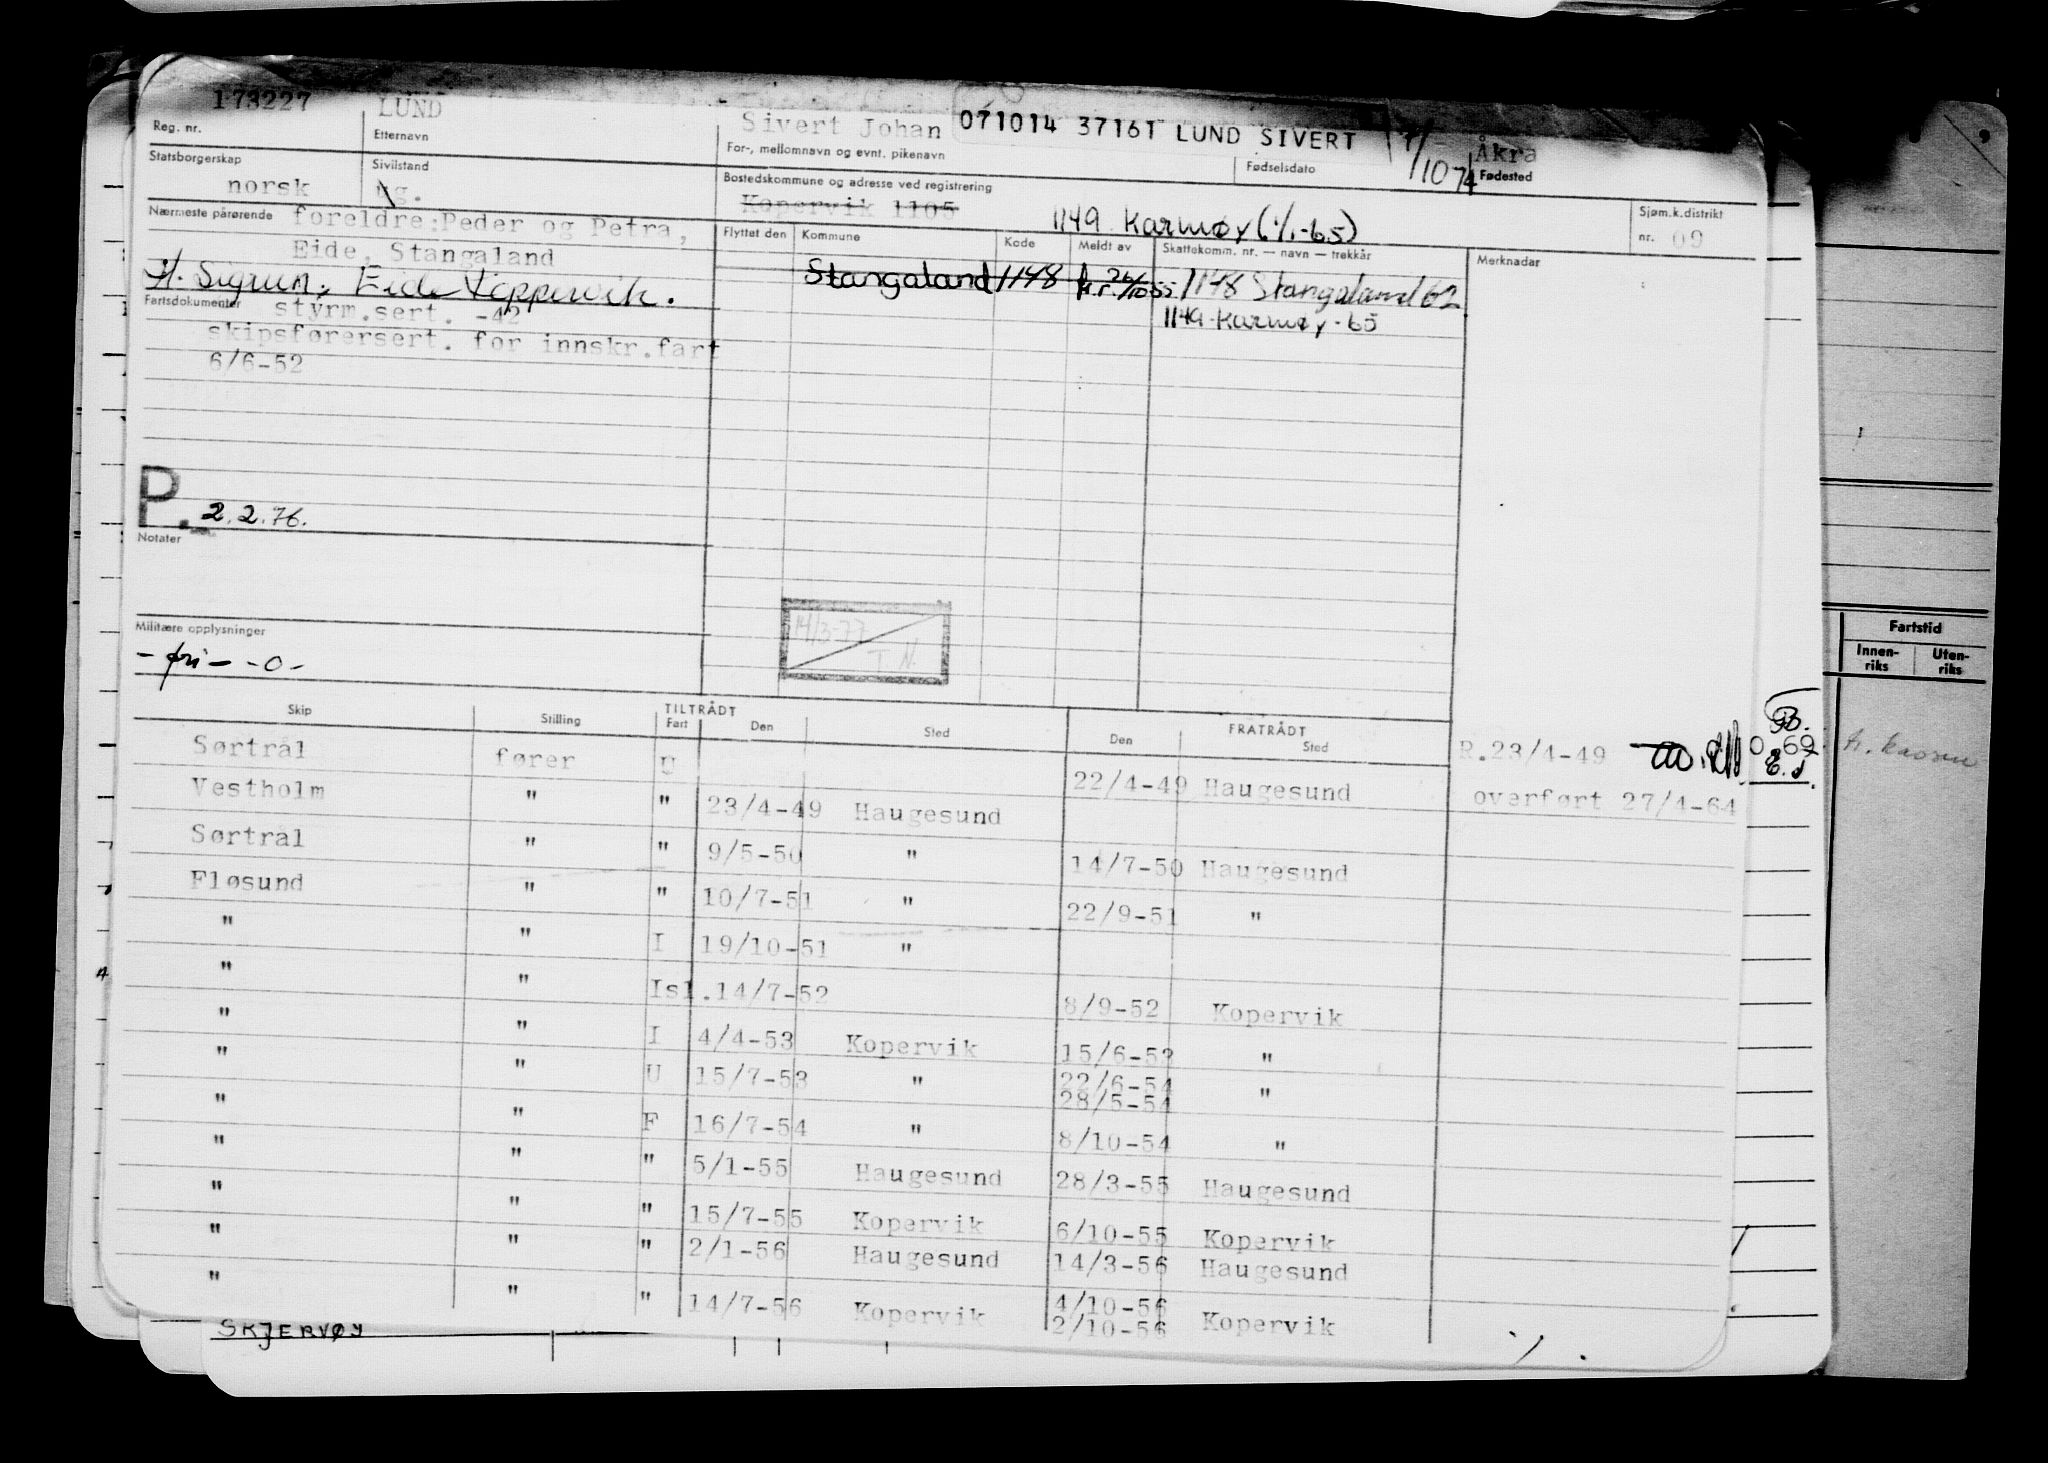 173227 LUND Sivert Johan 071014 37161 LUND SIVERT 7/10 Åkra
Reg. nr. Etternavn For-, mellomnavn og evnt. pikenavn Fødselsdato Fødested
Statsborgerskap Sivilstand Bostedskommune og adresse ved registrering
norsk g. Kopervik 1105 1149 Karmøy (1/1-65) Sjøm.k.distrikt nr. 09
Nærmeste pårørende foreldre: Peder og Petra,
Eide, Stangaland
H. Sigrun, Eide
Flyttet den Kommune Kode Meldt av Skattekomm. nr. — navn — trekkår Merknadar
Stangaland 1148 1148 Stangaland 62
1149 Karmøy - 65
Fartsdokumenter styrm.sert. -42
skipsførersert. for innskr.fart
6/6-52
P. 2.2.76.
Notater
14/3-77
T.N.
Militære opplysninger
- fri - -0-
Skip Stilling TILTRÅDT Fart Den Sted FRATRÅDT Den Sted
Sørtrål fører U 22/4-49 Haugesund R.23/4-49
Vestholm " " 23/4-49 Haugesund overført 27/4-64
Sørtrål " " 9/5-50 " 14/7-50 Haugesund
Fløsund " " 10/7-51 " 22/9-51 "
" " I 19/10-51 "
" " Isl. 14/7-52 8/9-52 Kopervik
" " I 4/4-53 Kopervik 15/6-53 "
" " U 15/7-53 " 22/6-54 "
28/5-54
" " F 16/7-54 " 8/10-54 "
" " " 5/1-55 Haugesund 28/3-55 Haugesund
" " " 15/7-55 Kopervik 6/10-55 Kopervik
" " " 2/1-56 Haugesund 14/3-56 Haugesund
" " " 14/7-56 Kopervik 4/10-56
2/10-56 Kopervik
SKJERVØY
Fartstid
Innen-riks Uten-riks